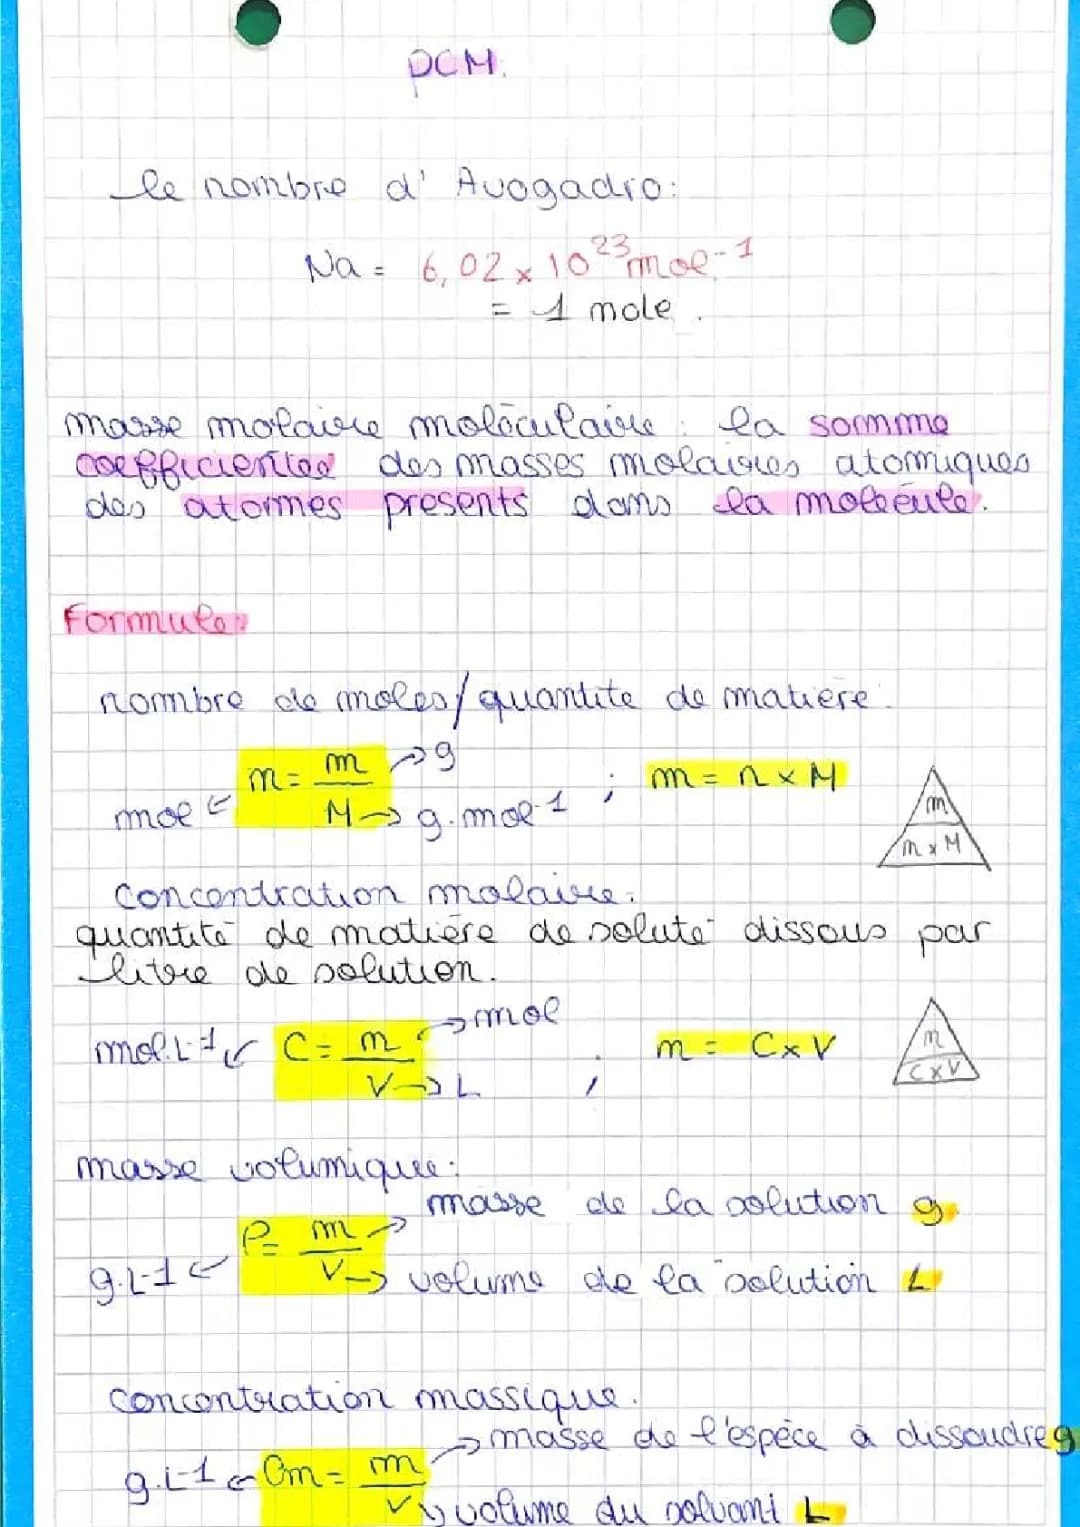 PCM.
le nombre d' Avogadro:
Na = 6,02 x 10²³ mol⁻¹
= 1 mole.
masse molaire moléculaire : la somme
coefficientée des masses molaires atomiques
des atomes presents dans la molécule.
Formules
nombre de moles/quantité de matière:
n = m/M → g ; m = n x M
mol ← → g.mol-1
m
n x M
Concentration molaire:
quantité de matière de soluté dissous par
litre de solution.
mol.L-1 ← C = n/V → mol ; n = C x V
→ L
n
C x V
masse volumique:
masse de la solution g
g.L-1 ← ρ = m/V → volume de la solution L
concentration massique.
→ masse de l'espèce à dissoudre g
g.L-1 ← Cm = m/V
→ volume du solvant L